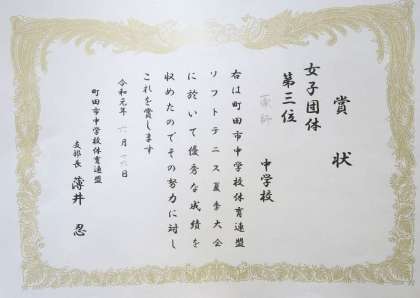 賞状
女子団体
第三位
薬師 中学校
右は町田市中学校体育連盟
ソフトテニス夏季大会
に於いて優秀な成績を
収めたのでその努力に対し
これを賞します
令和元年六月 日
町田市中学校体育連盟
支部長 薄井 忍